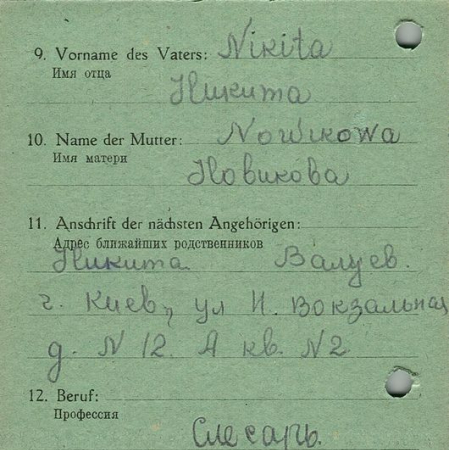 9. Vorname des Vaters: Nikita
Имя отца
Никита
10. Name der Mutter: Nowikowa
Имя матери
Новикова
11. Anschrift der nächsten Angehörigen:
Адрес ближайших родственников
Никита Валуев.
г. Киев, ул И. Вокзальная
д. N 12. А кв. N 2.
12. Beruf:
Профессия
Слесарь.